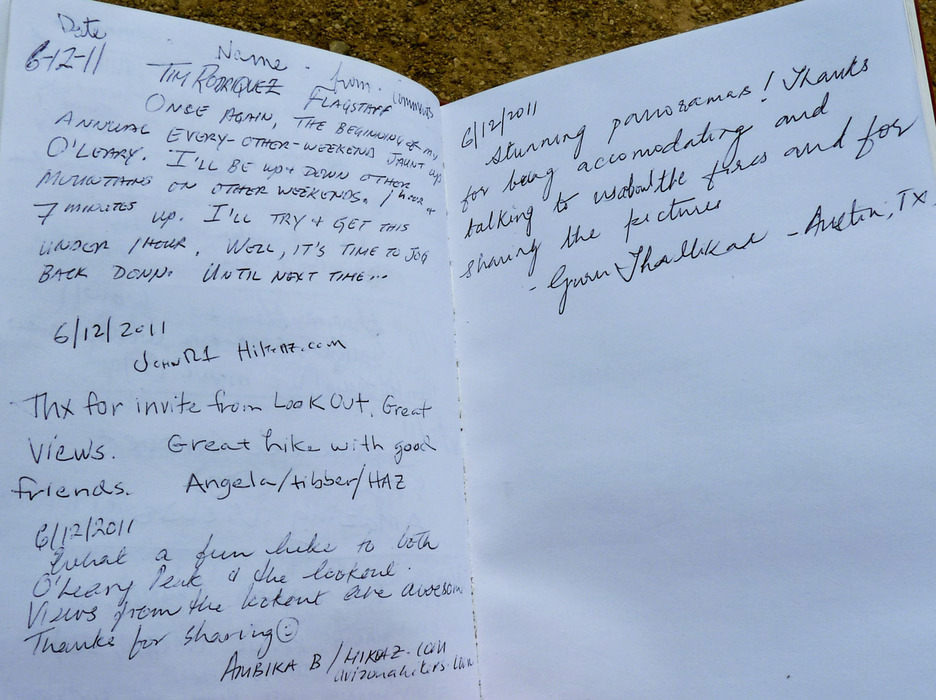 Date
6-12-11
Name - from - comments
TIM RODRIQUEZ FLAGSTAFF
ONCE AGAIN, THE BEGINNING OF MY
ANNUAL EVERY-OTHER-WEEKEND JAUNT UP
O'LEARY. I'LL BE UP + DOWN OTHER
MOUNTAINS ON OTHER WEEKENDS. 1 hour +
7 MINUTES UP. I'LL TRY + GET THIS
UNDER 1 HOUR. WELL, IT'S TIME TO JOG
BACK DOWN. UNTIL NEXT TIME...
6/12/2011
HikeAZ.com
Thx for invite from LookOut. Great
Views. Great hike with good
friends. Angela/tibber/HAZ
6/12/2011
What a fun hike to both
O'Leary Peak & the lookout.
Views from the lookout are awesom
Thanks for sharing☺
AMBIKA B / HIKEAZ.com
arizonahikers.com
6/12/2011
stunning panoramas! Thanks
for being accomodating and
talking to us about the fires and for
sharing the pictures
- Guru Thallikar - Austin, TX.